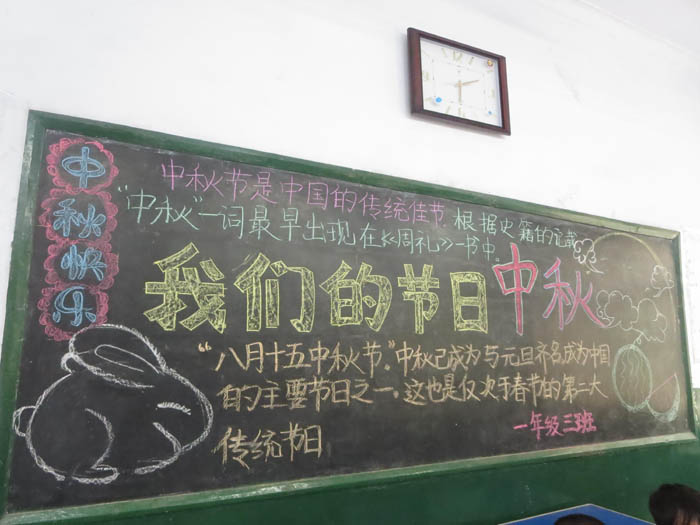 中秋快乐
中秋节是中国的传统佳节 根据史籍的记载
“中秋”一词最早出现在《周礼》一书中。
我们的节日 中秋
“八月十五中秋节。”中秋已成为与元旦齐名成为中国
的主要节日之一。这也是仅次于春节的第二大
传统节日
一年级三班